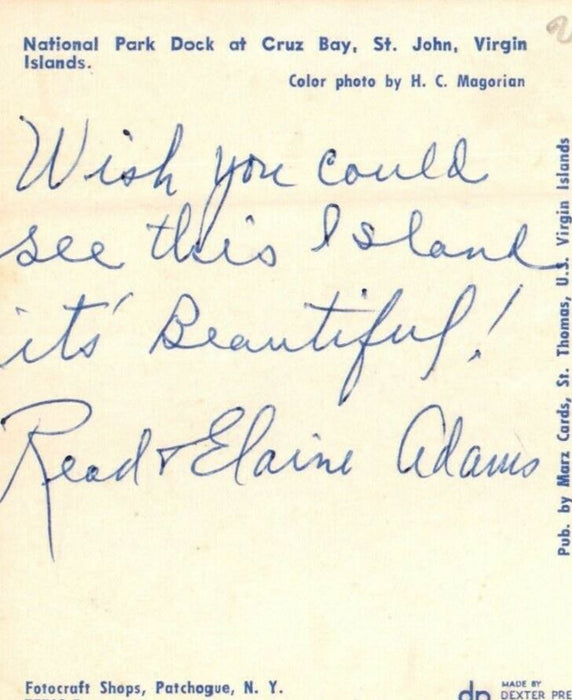 National Park Dock at Cruz Bay, St. John, Virgin
Islands.
Color photo by H. C. Magorian
Wish you could
see this Island
its' Beautiful!
Read & Elaine Adams
Pub. by Marz Cards, St. Thomas, U.S. Virgin Islands
Fotocraft Shops, Patchogue, N. Y.
dp
MADE BY
DEXTER PRE